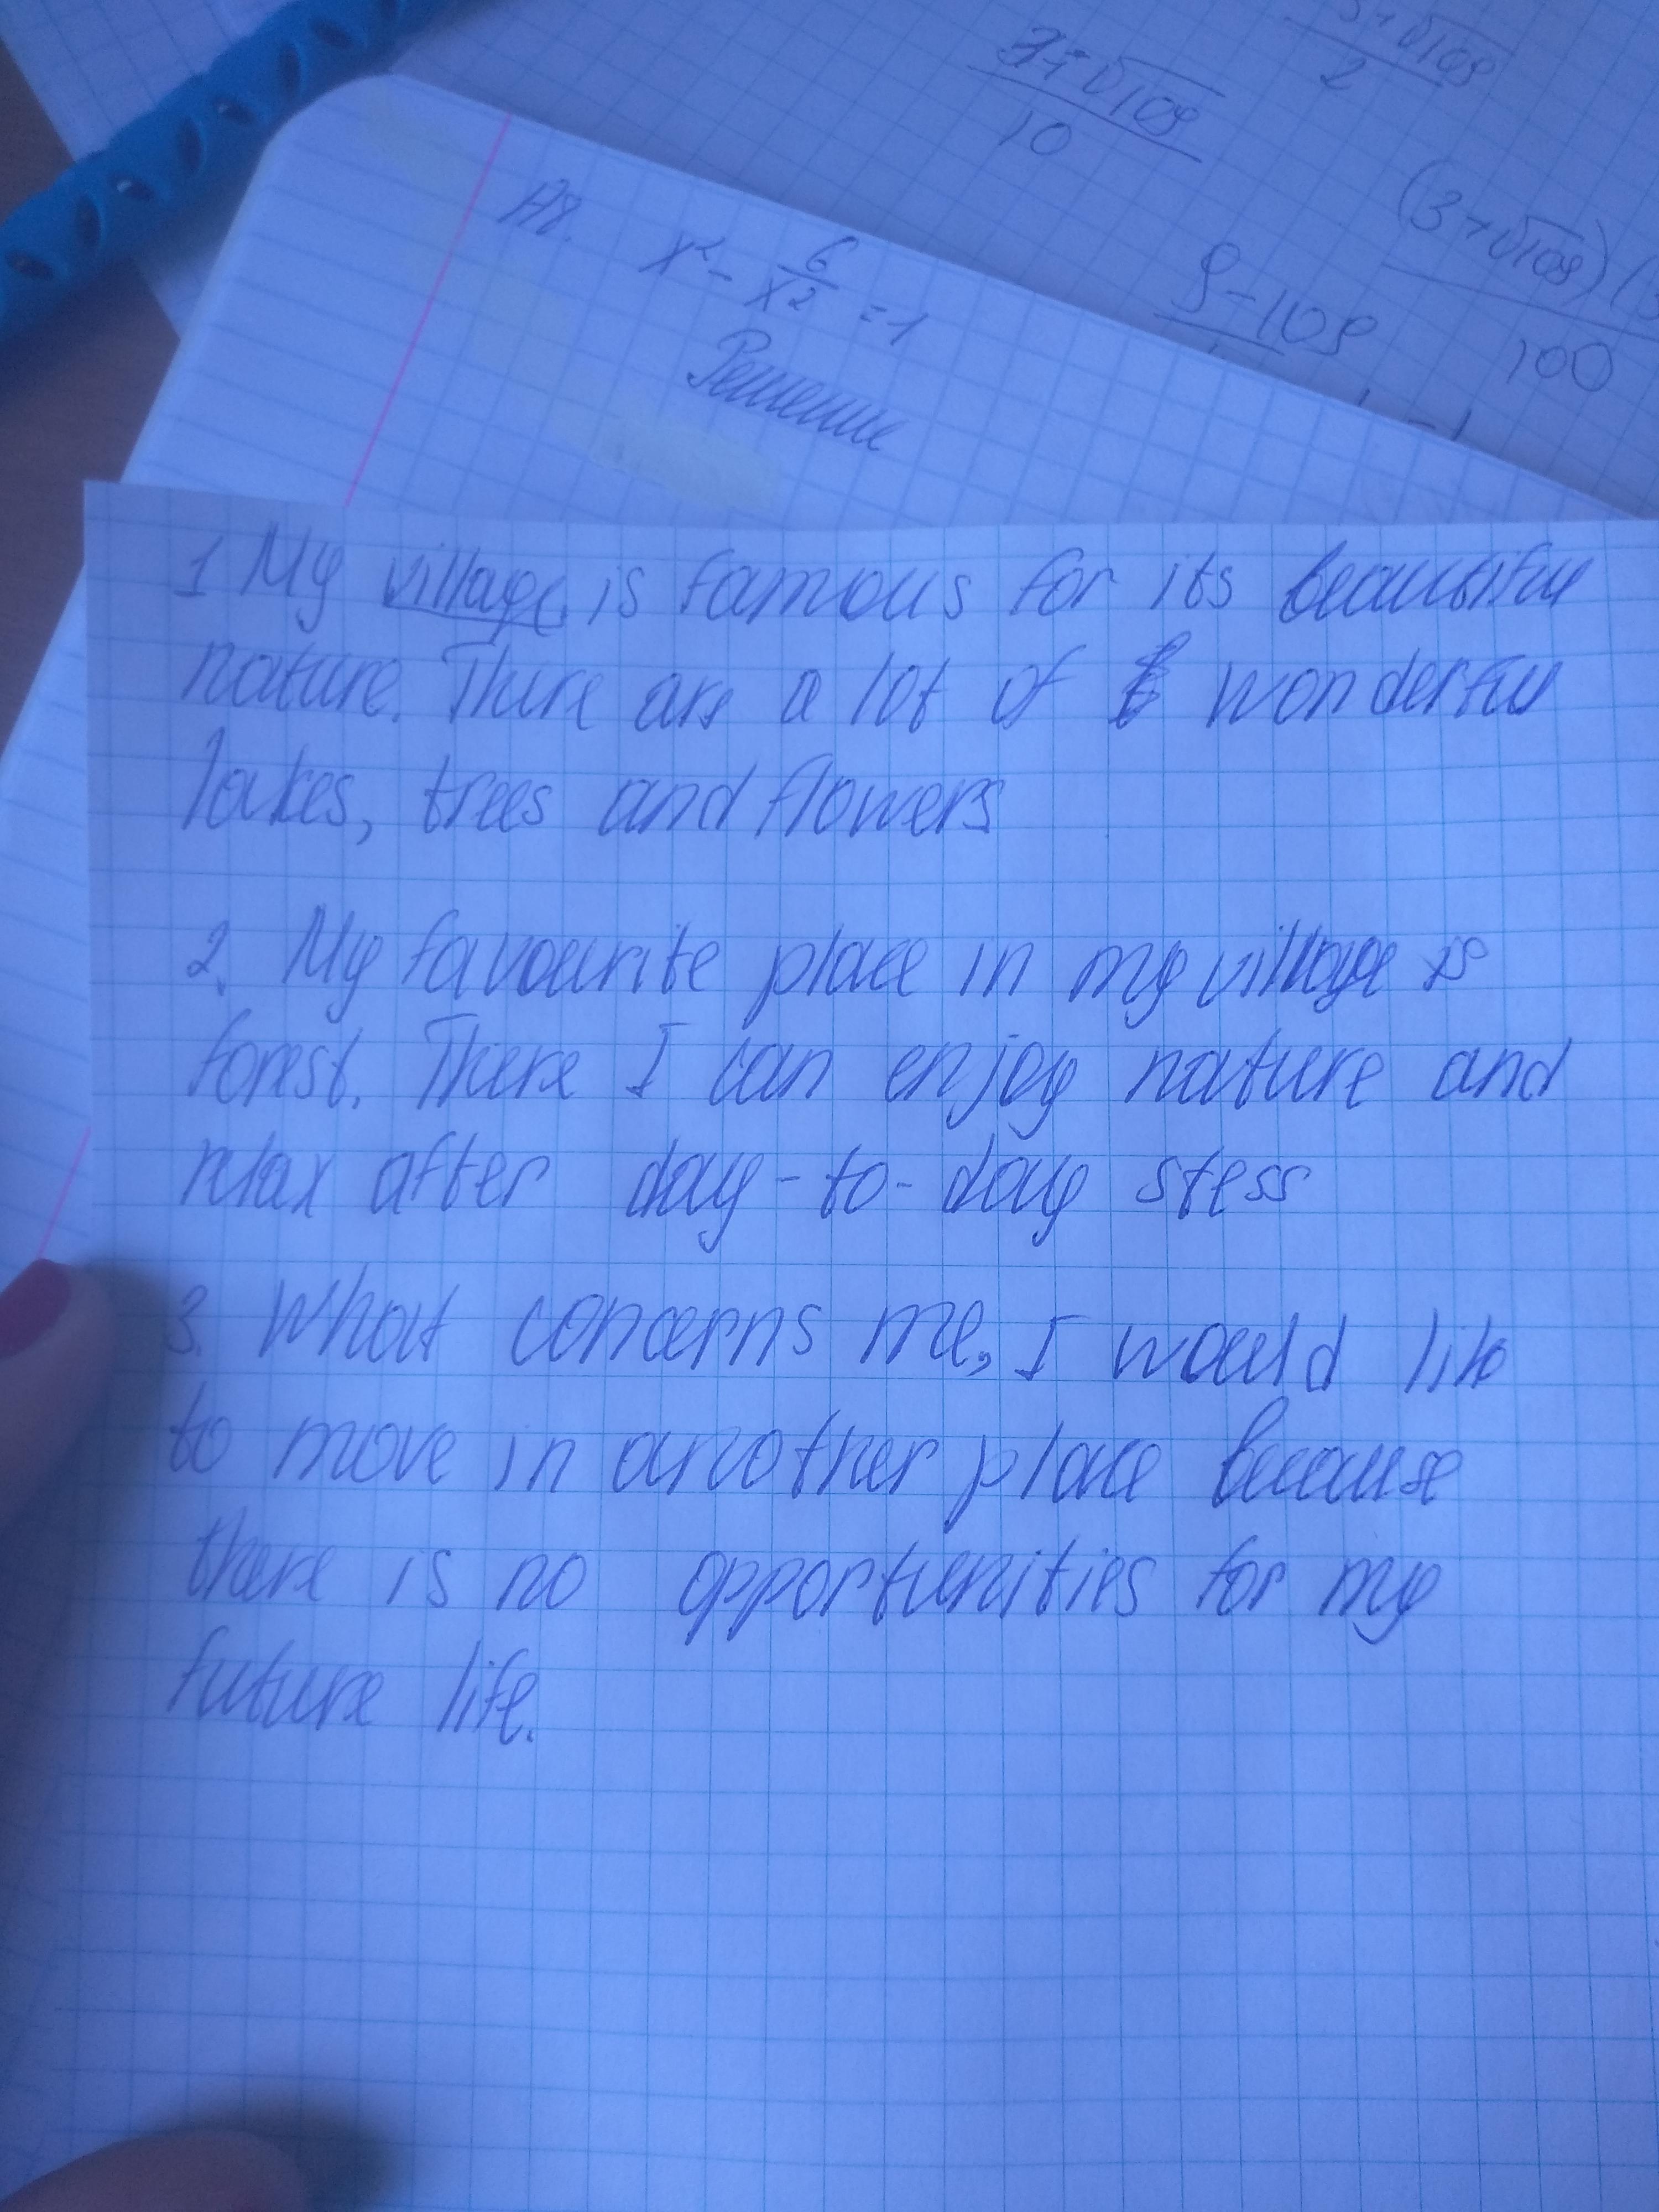 3+√109
2
3+√109
10
(3+√109)(
100
9-109
A8. x² - 6/x² = 1
Решение
1 My village is famous for its beautiful
nature. There are a lot of wonderful
lakes, trees and flowers
2. My favourite place in my village is
forest. There I can enjoy nature and
relax after day-to-day stess
3. What concerns me, I would like
to move in another place because
there is no opportunities for my
future life.